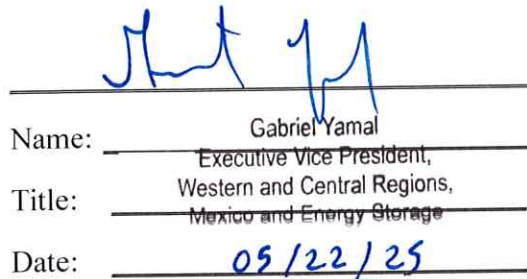 Name: Gabriel Yamal
Executive Vice President,
Title: Western and Central Regions,
Mexico and Energy Storage
Date: 05/22/25